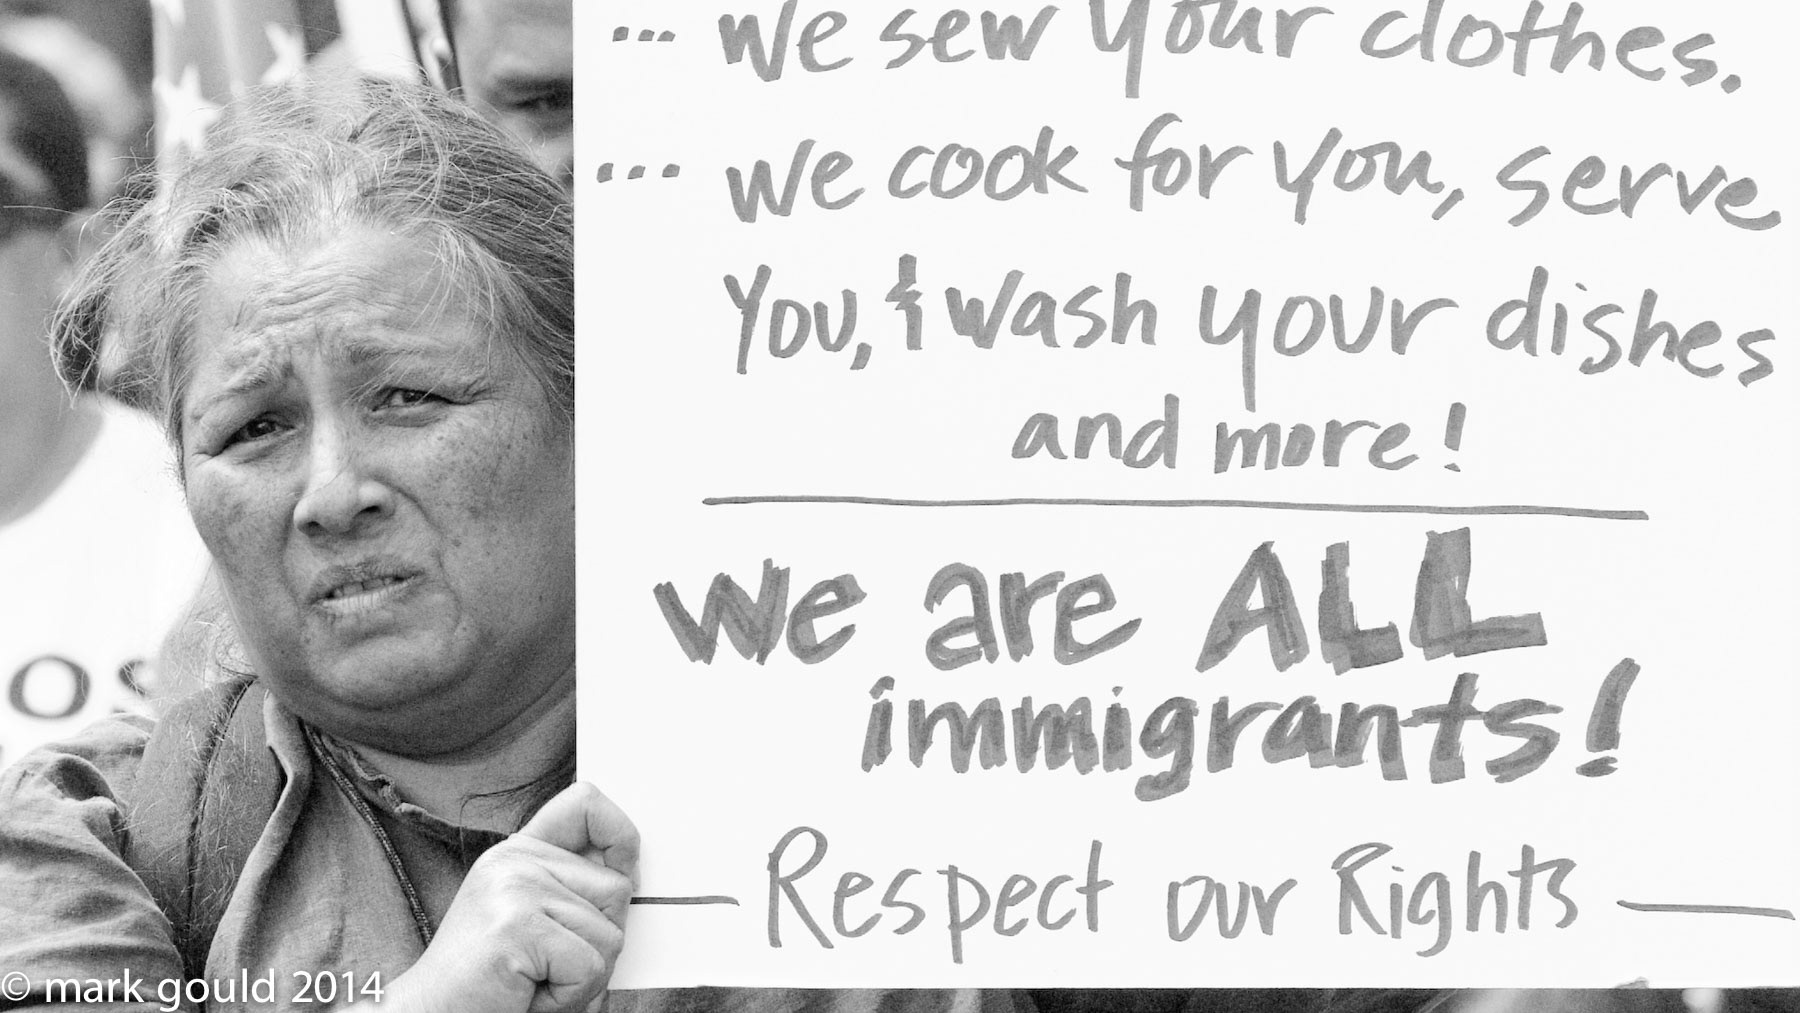 ... We sew your clothes.
... We cook for you, serve
you, & wash your dishes
and more!
We are ALL
immigrants!
— Respect our Rights —
os
© mark gould 2014